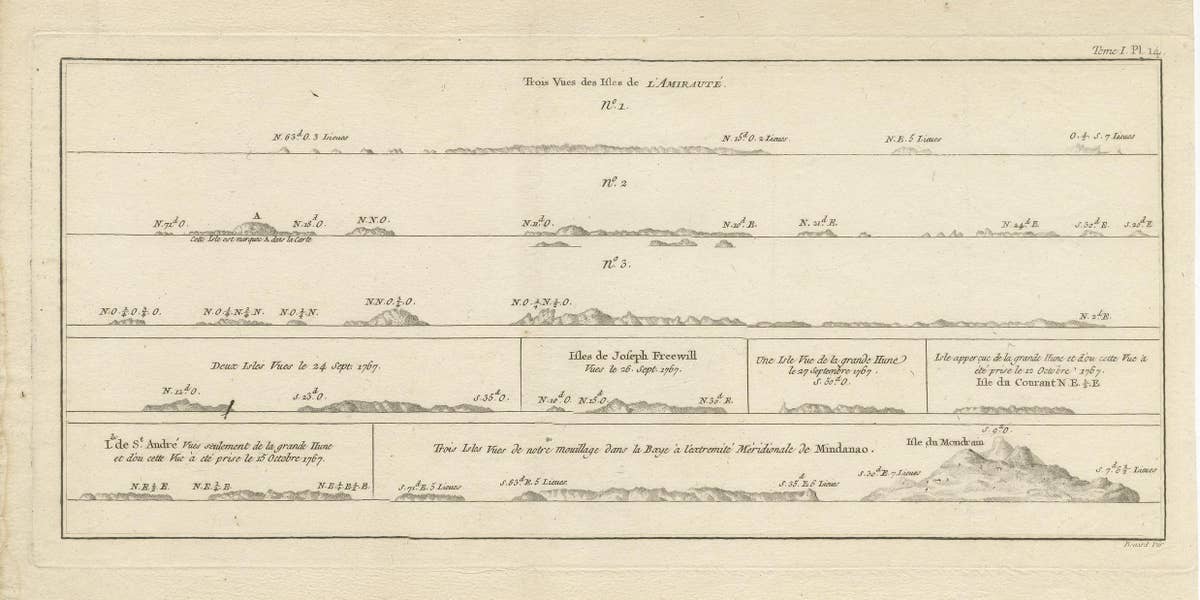 Tome I. Pl. 14.
Trois Vues des Isles de L'AMIRAUTÉ.
Nº. 1.
N. 63ᵈ O. 3 Lieues
N. 15ᵈ O. 2 Lieues
N. E. 5 Lieues
O. ¼ S. 7 Lieues
Nº. 2
N. 71ᵈ O.
A
N. 18ᵈ O.
N. N. O.
N. 11ᵈ O.
N. 10ᵈ E.
N. 21ᵈ E.
N. 24ᵈ E.
S. 32ᵈ E.
S. 28ᵈ E.
Cette Isle est marquée A dans la Carte
Nº. 3.
N. N. O. ¾ O.
N. O. ¼ N. ½ O.
N. O. ¼ N.
N. 2ᵈ E.
Deux Isles Vues le 24 Sept. 1767.
N. 12ᵈ O.
S. 23ᵈ O.
S. 35ᵈ O.
Isles de Joseph Freewill
Vues le 26. Sept. 1767.
N. 10ᵈ O.
N. 15ᵈ O.
N. 30ᵈ E.
Une Isle Vue de la grande Hune
le 27 Septembre 1767.
S. 30ᵈ O.
Isle apperçue de la grande Hune et d'ou cette Vue à
été prise le 12 Octobre 1767.
Isle du Courant N. E. ¼ E
I. de Sᵗ. André Vues seulement de la grande Hune
et d'ou cette Vue à été prise le 15 Octobre 1767.
N. E. ½ E.
N. E. ¾ E.
N. E. ¼ E. ½ E.
Trois Isles Vues de notre mouillage dans la Baye à l'extremité Méridionale de Mindanao.
S. 71ᵈ E. 5 Lieues
S. 63ᵈ E. 5 Lieues
S. 35. E. 6 Lieues
Isle du Mondrain
S. 9ᵈ O.
S. 30ᵈ E. 7 Lieues
S. 7ᵈ 6 ½ Lieues
Benard Dir.